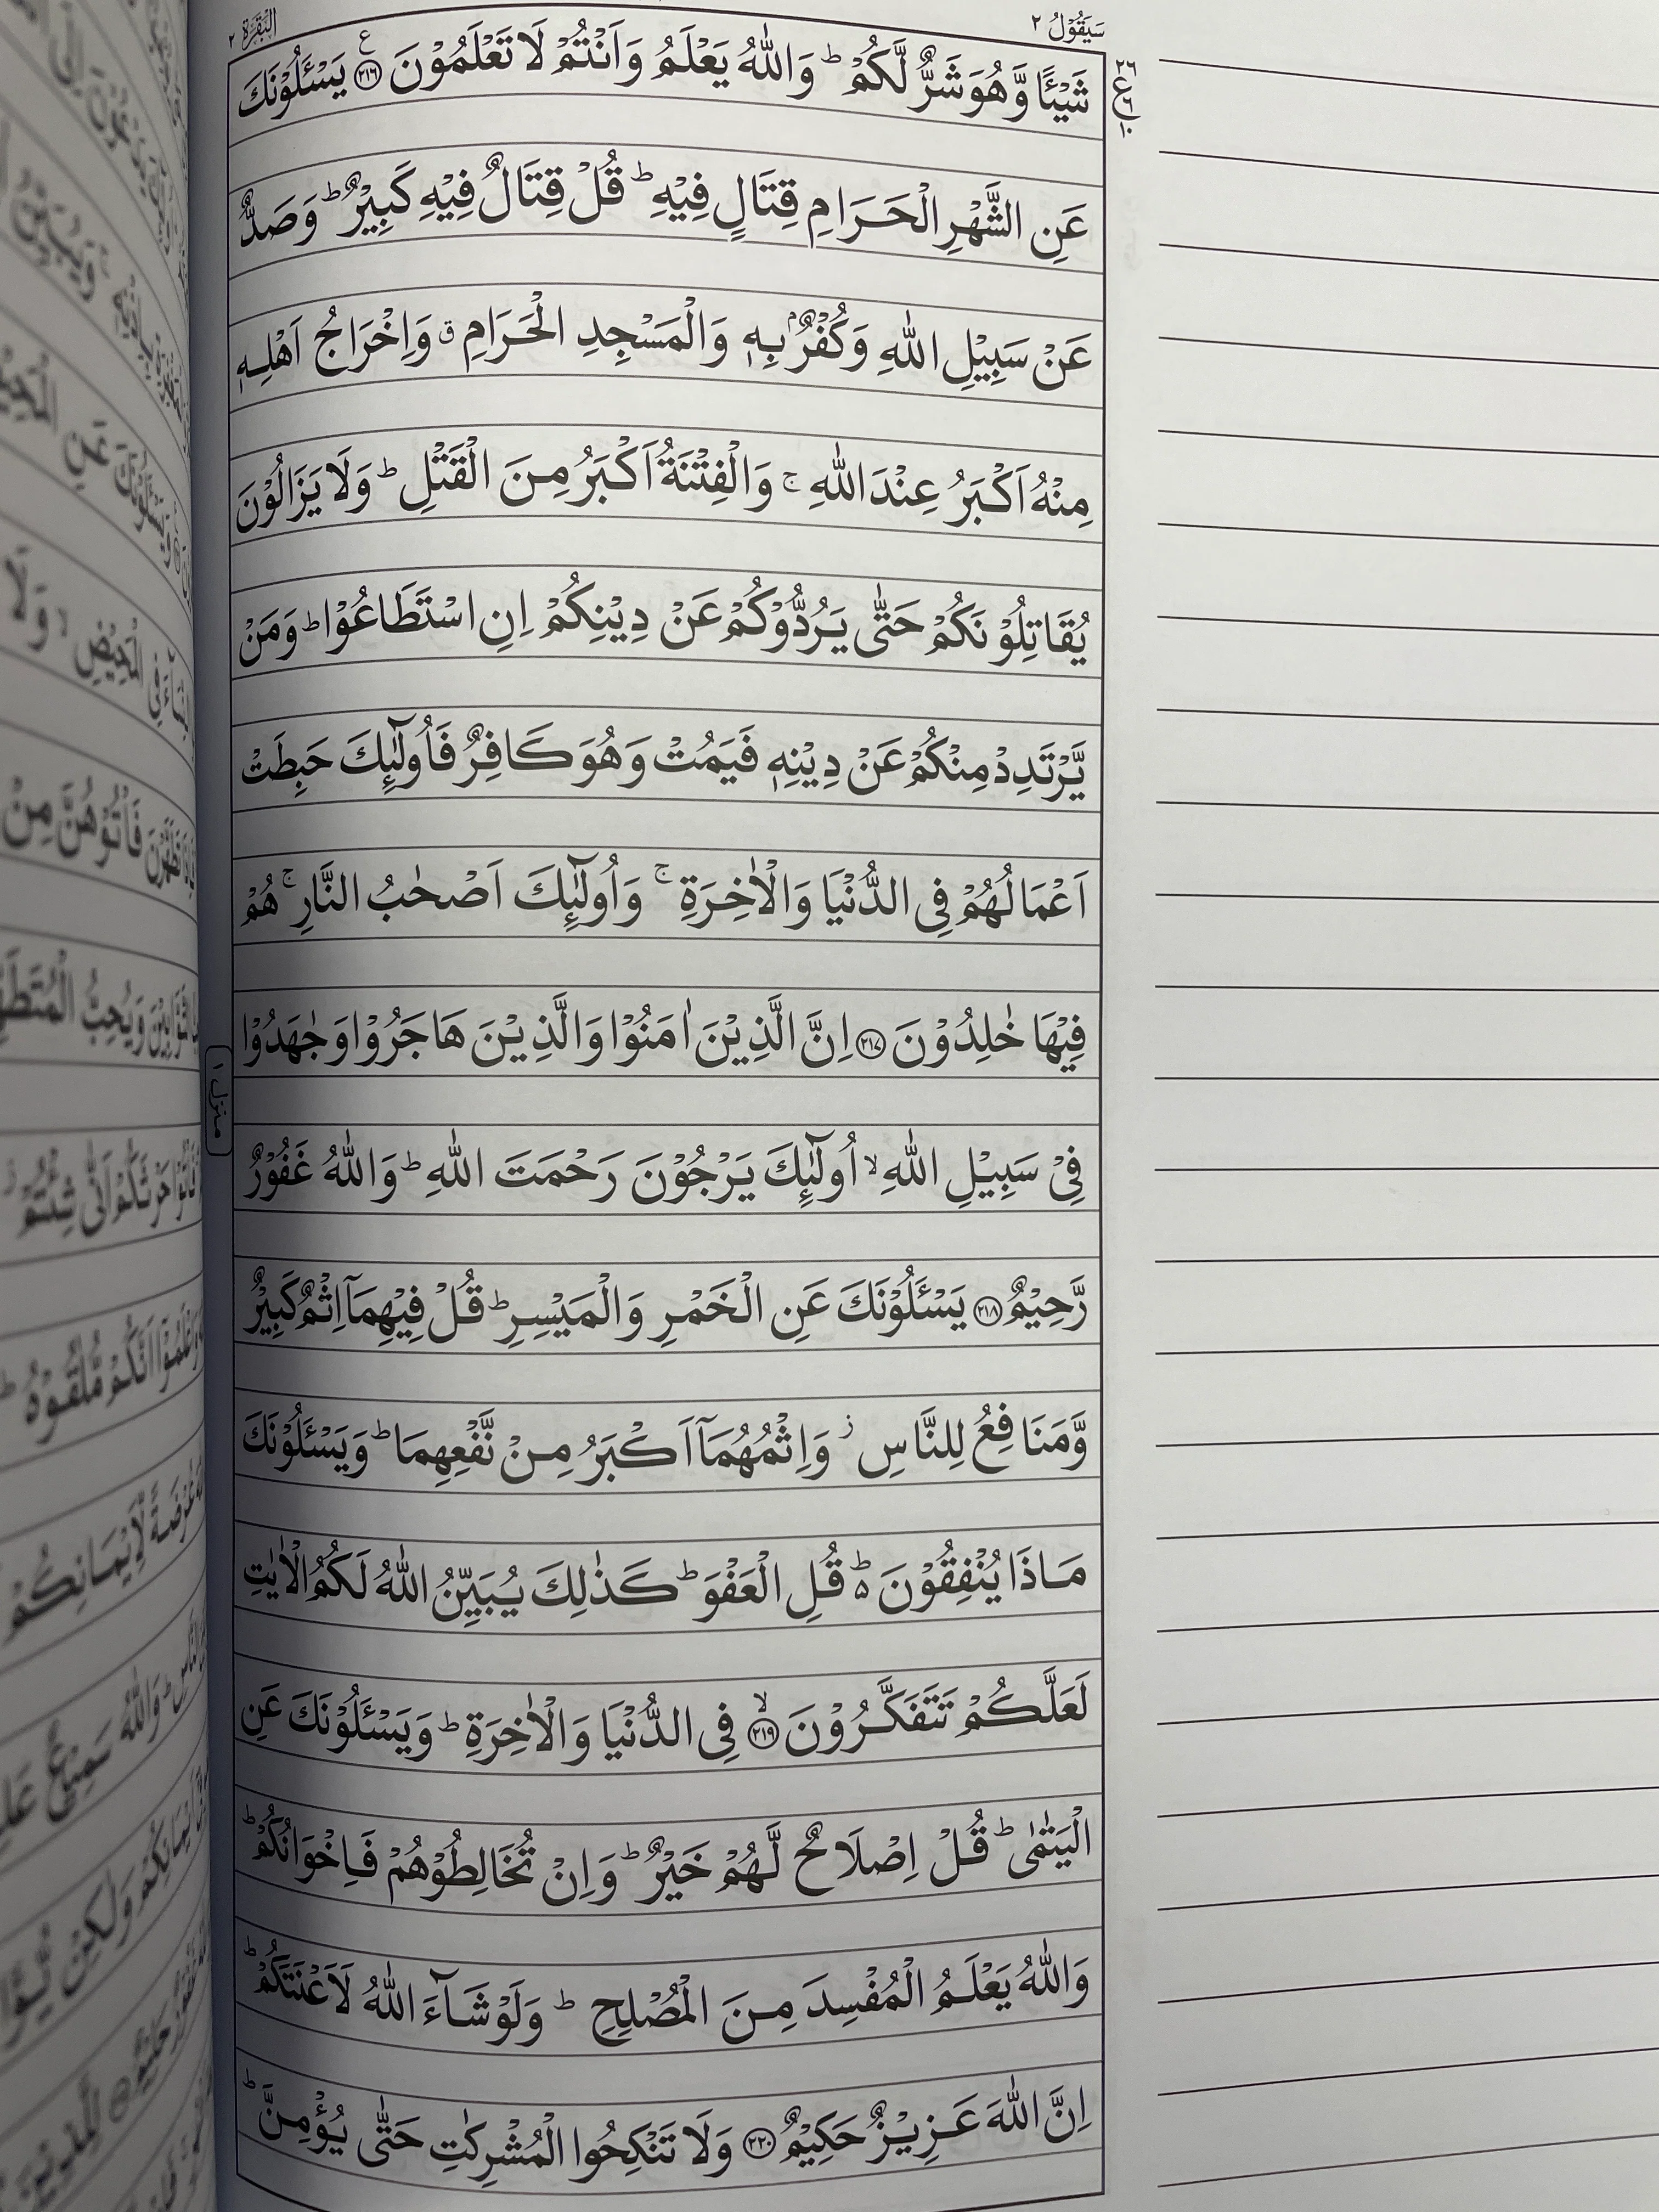 سَيَقُوْلُ ٢
البقرة ٢
٢٦
ع
٦
١٠
شَيْـًٔا وَّهُوَ شَرٌّ لَّكُمْ ؕ وَاللّٰهُ يَعْلَمُ وَاَنْتُمْ لَا تَعْلَمُوْنَ ﴿٢١٦﴾ ع يَسْـَٔلُوْنَكَ
عَنِ الشَّهْرِ الْحَرَامِ قِتَالٍ فِيْهِ ؕ قُلْ قِتَالٌ فِيْهِ كَبِيْرٌ ؕ وَصَدٌّ
عَنْ سَبِيْلِ اللّٰهِ وَكُفْرٌۢ بِهٖ وَالْمَسْجِدِ الْحَرَامِ ۗ وَاِخْرَاجُ اَهْلِهٖ
مِنْهُ اَكْبَرُ عِنْدَ اللّٰهِ ۚ وَالْفِتْنَةُ اَكْبَرُ مِنَ الْقَتْلِ ؕ وَلَا يَزَالُوْنَ
يُقَاتِلُوْنَكُمْ حَتّٰى يَرُدُّوْكُمْ عَنْ دِيْنِكُمْ اِنِ اسْتَطَاعُوْا ؕ وَمَنْ
يَّرْتَدِدْ مِنْكُمْ عَنْ دِيْنِهٖ فَيَمُتْ وَهُوَ كَافِرٌ فَاُولٰٓئِكَ حَبِطَتْ
اَعْمَالُهُمْ فِى الدُّنْيَا وَالْاٰخِرَةِ ۚ وَاُولٰٓئِكَ اَصْحٰبُ النَّارِ ۚ هُمْ
فِيْهَا خٰلِدُوْنَ ﴿٢١٧﴾ اِنَّ الَّذِيْنَ اٰمَنُوْا وَالَّذِيْنَ هَاجَرُوْا وَجٰهَدُوْا
فِىْ سَبِيْلِ اللّٰهِ ۙ اُولٰٓئِكَ يَرْجُوْنَ رَحْمَتَ اللّٰهِ ؕ وَاللّٰهُ غَفُوْرٌ
رَّحِيْمٌ ﴿٢١٨﴾ يَسْـَٔلُوْنَكَ عَنِ الْخَمْرِ وَالْمَيْسِرِ ؕ قُلْ فِيْهِمَاۤ اِثْمٌ كَبِيْرٌ
وَّمَنَافِعُ لِلنَّاسِ ز وَاِثْمُهُمَاۤ اَكْبَرُ مِنْ نَّفْعِهِمَا ؕ وَيَسْـَٔلُوْنَكَ
مَاذَا يُنْفِقُوْنَ ۵ؕ قُلِ الْعَفْوَ ؕ كَذٰلِكَ يُبَيِّنُ اللّٰهُ لَكُمُ الْاٰيٰتِ
لَعَلَّكُمْ تَتَفَكَّرُوْنَ ۙ﴿٢١٩﴾ فِى الدُّنْيَا وَالْاٰخِرَةِ ؕ وَيَسْـَٔلُوْنَكَ عَنِ
الْيَتٰمٰى ؕ قُلْ اِصْلَاحٌ لَّهُمْ خَيْرٌ ؕ وَاِنْ تُخَالِطُوْهُمْ فَاِخْوَانُكُمْ ؕ
وَاللّٰهُ يَعْلَمُ الْمُفْسِدَ مِنَ الْمُصْلِحِ ؕ وَلَوْ شَآءَ اللّٰهُ لَاَعْنَتَكُمْ ؕ
اِنَّ اللّٰهَ عَزِيْزٌ حَكِيْمٌ ﴿٢٢٠﴾ وَلَا تَنْكِحُوا الْمُشْرِكٰتِ حَتّٰى يُؤْمِنَّ ؕ
منزل ١
وَيَسْـَٔلُوْنَكَ عَنِ
الْمَحِيْضِ ۙ وَلَا
فَاْتُوْهُنَّ مِنْ
وَيُحِبُّ
حَرْثَكُمْ اَنّٰى شِئْتُمْ ز
اَنَّكُمْ مُّلٰقُوْهُ ؕ
عُرْضَةً لِّاَيْمَانِكُمْ
وَاللّٰهُ سَمِيْعٌ